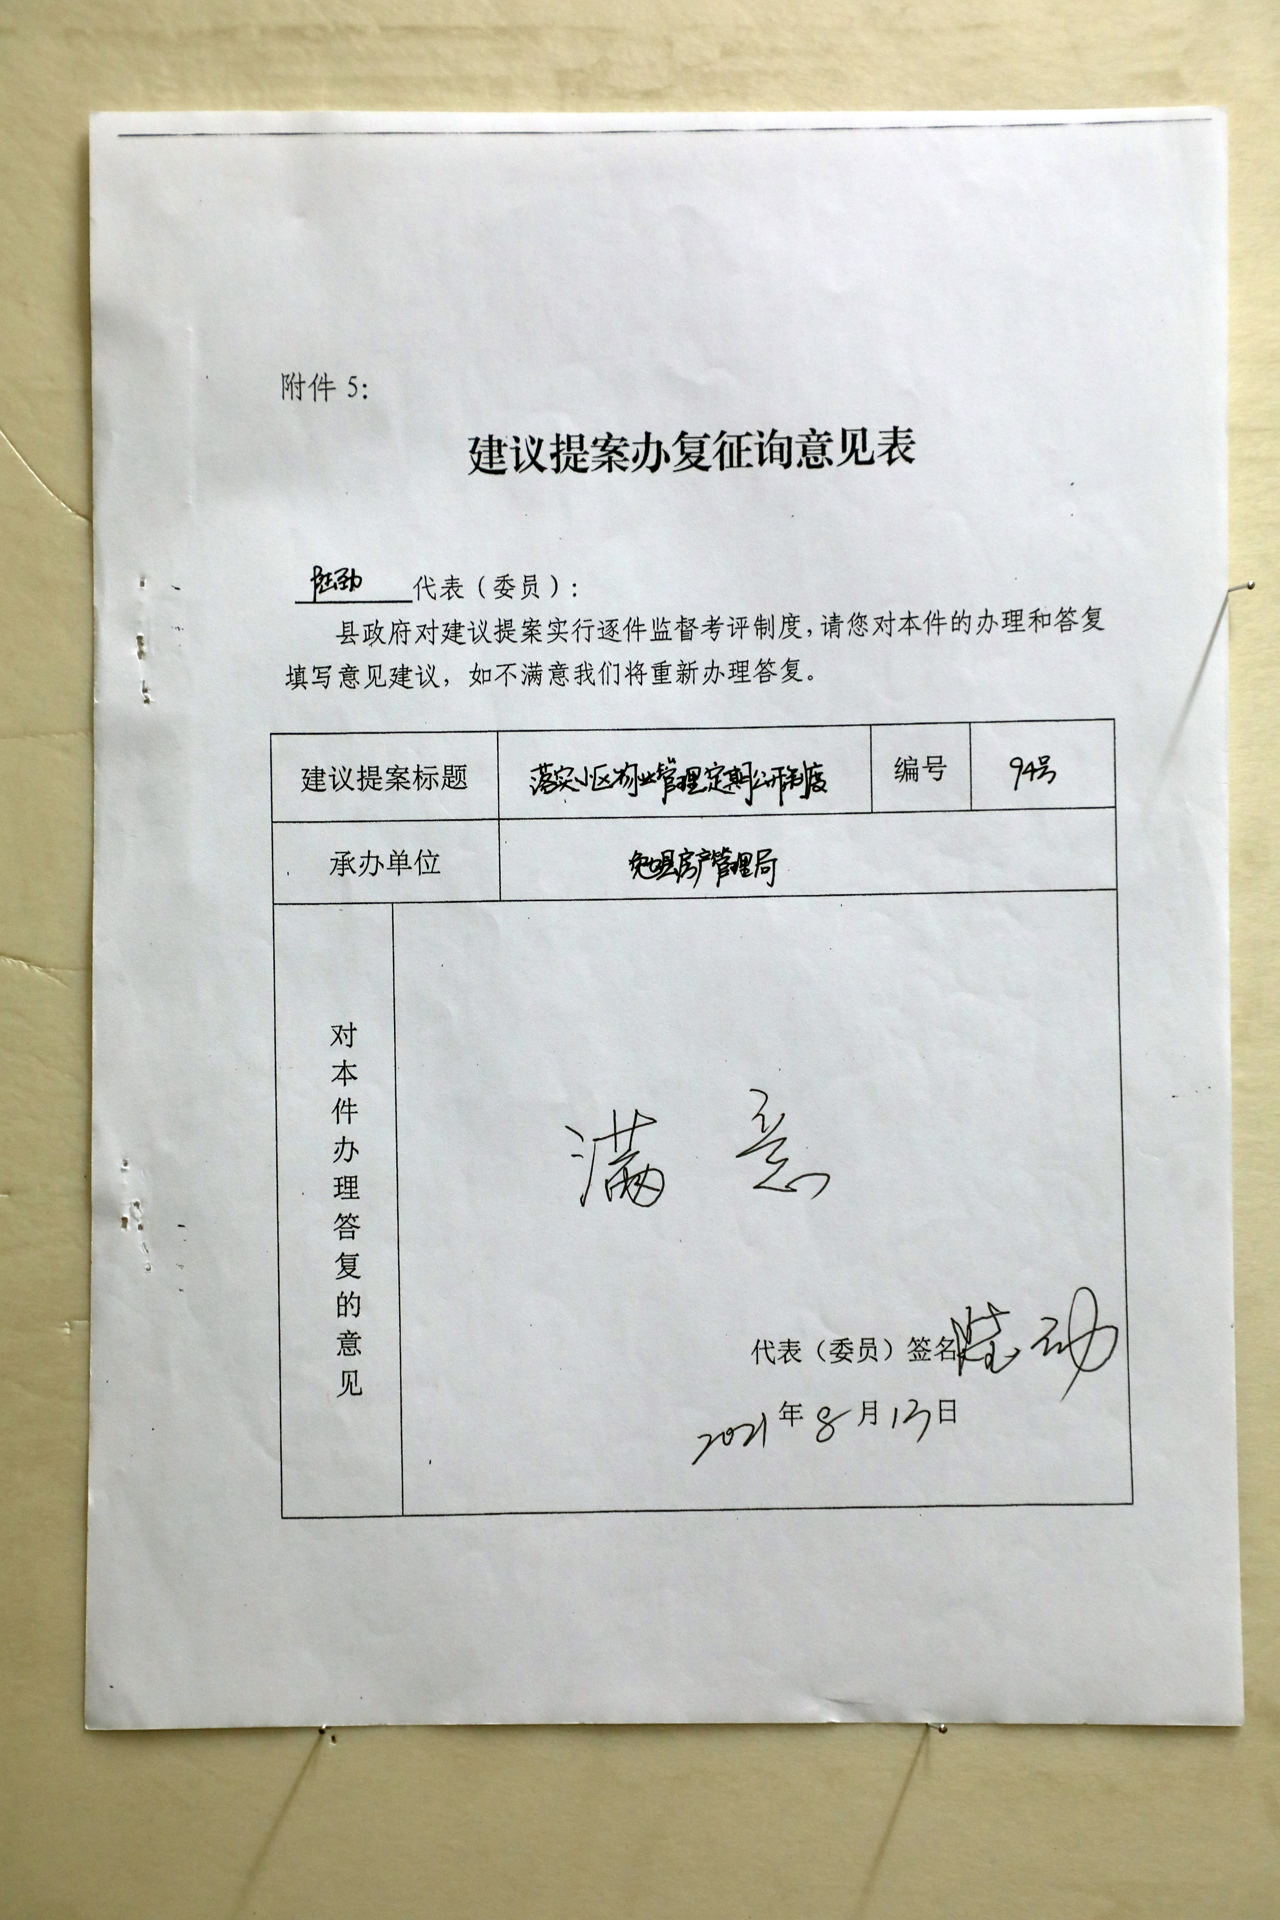 附件 5：
建议提案办复征询意见表
代表（委员）：
县政府对建议提案实行逐件监督考评制度，请您对本件的办理和答复
填写意见建议，如不满意我们将重新办理答复。
建议提案标题 落实小区物业管理定期公开制度 编号 94号
承办单位 勉县房产管理局
对本件办理答复的意见
满 意
代表（委员）签名
2021年8月13日